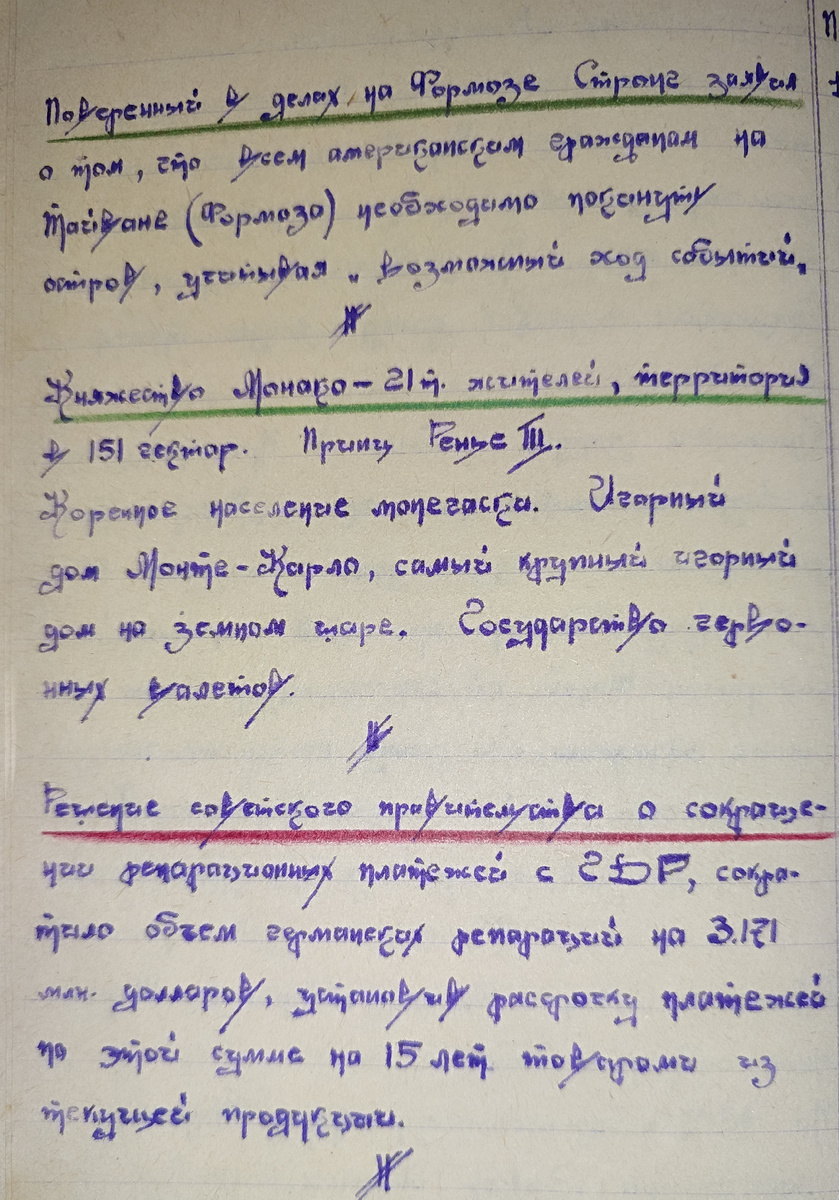 Поверенный в делах на Формозе Стронг заявил
о том, что всем американским гражданам на
Тайване (Формоза) необходимо покинуть
остров, учитывая „возможный ход событий„
Княжество Монако – 21 т. жителей, территория
в 151 гектар. Принц Ренье III.
Коренное население монегаски. Игорный
дом Монте-Карло, самый крупный игорный
дом на земном шаре. Государство черво-
нных валетов.
Решение советского правительства о сокраще-
нии репарационных платежей с ГДР, сокра-
тило объем германских репараций на 3.171
млн. долларов, установив рассрочку платежей
по этой сумме на 15 лет товарами из
текущей продукции.